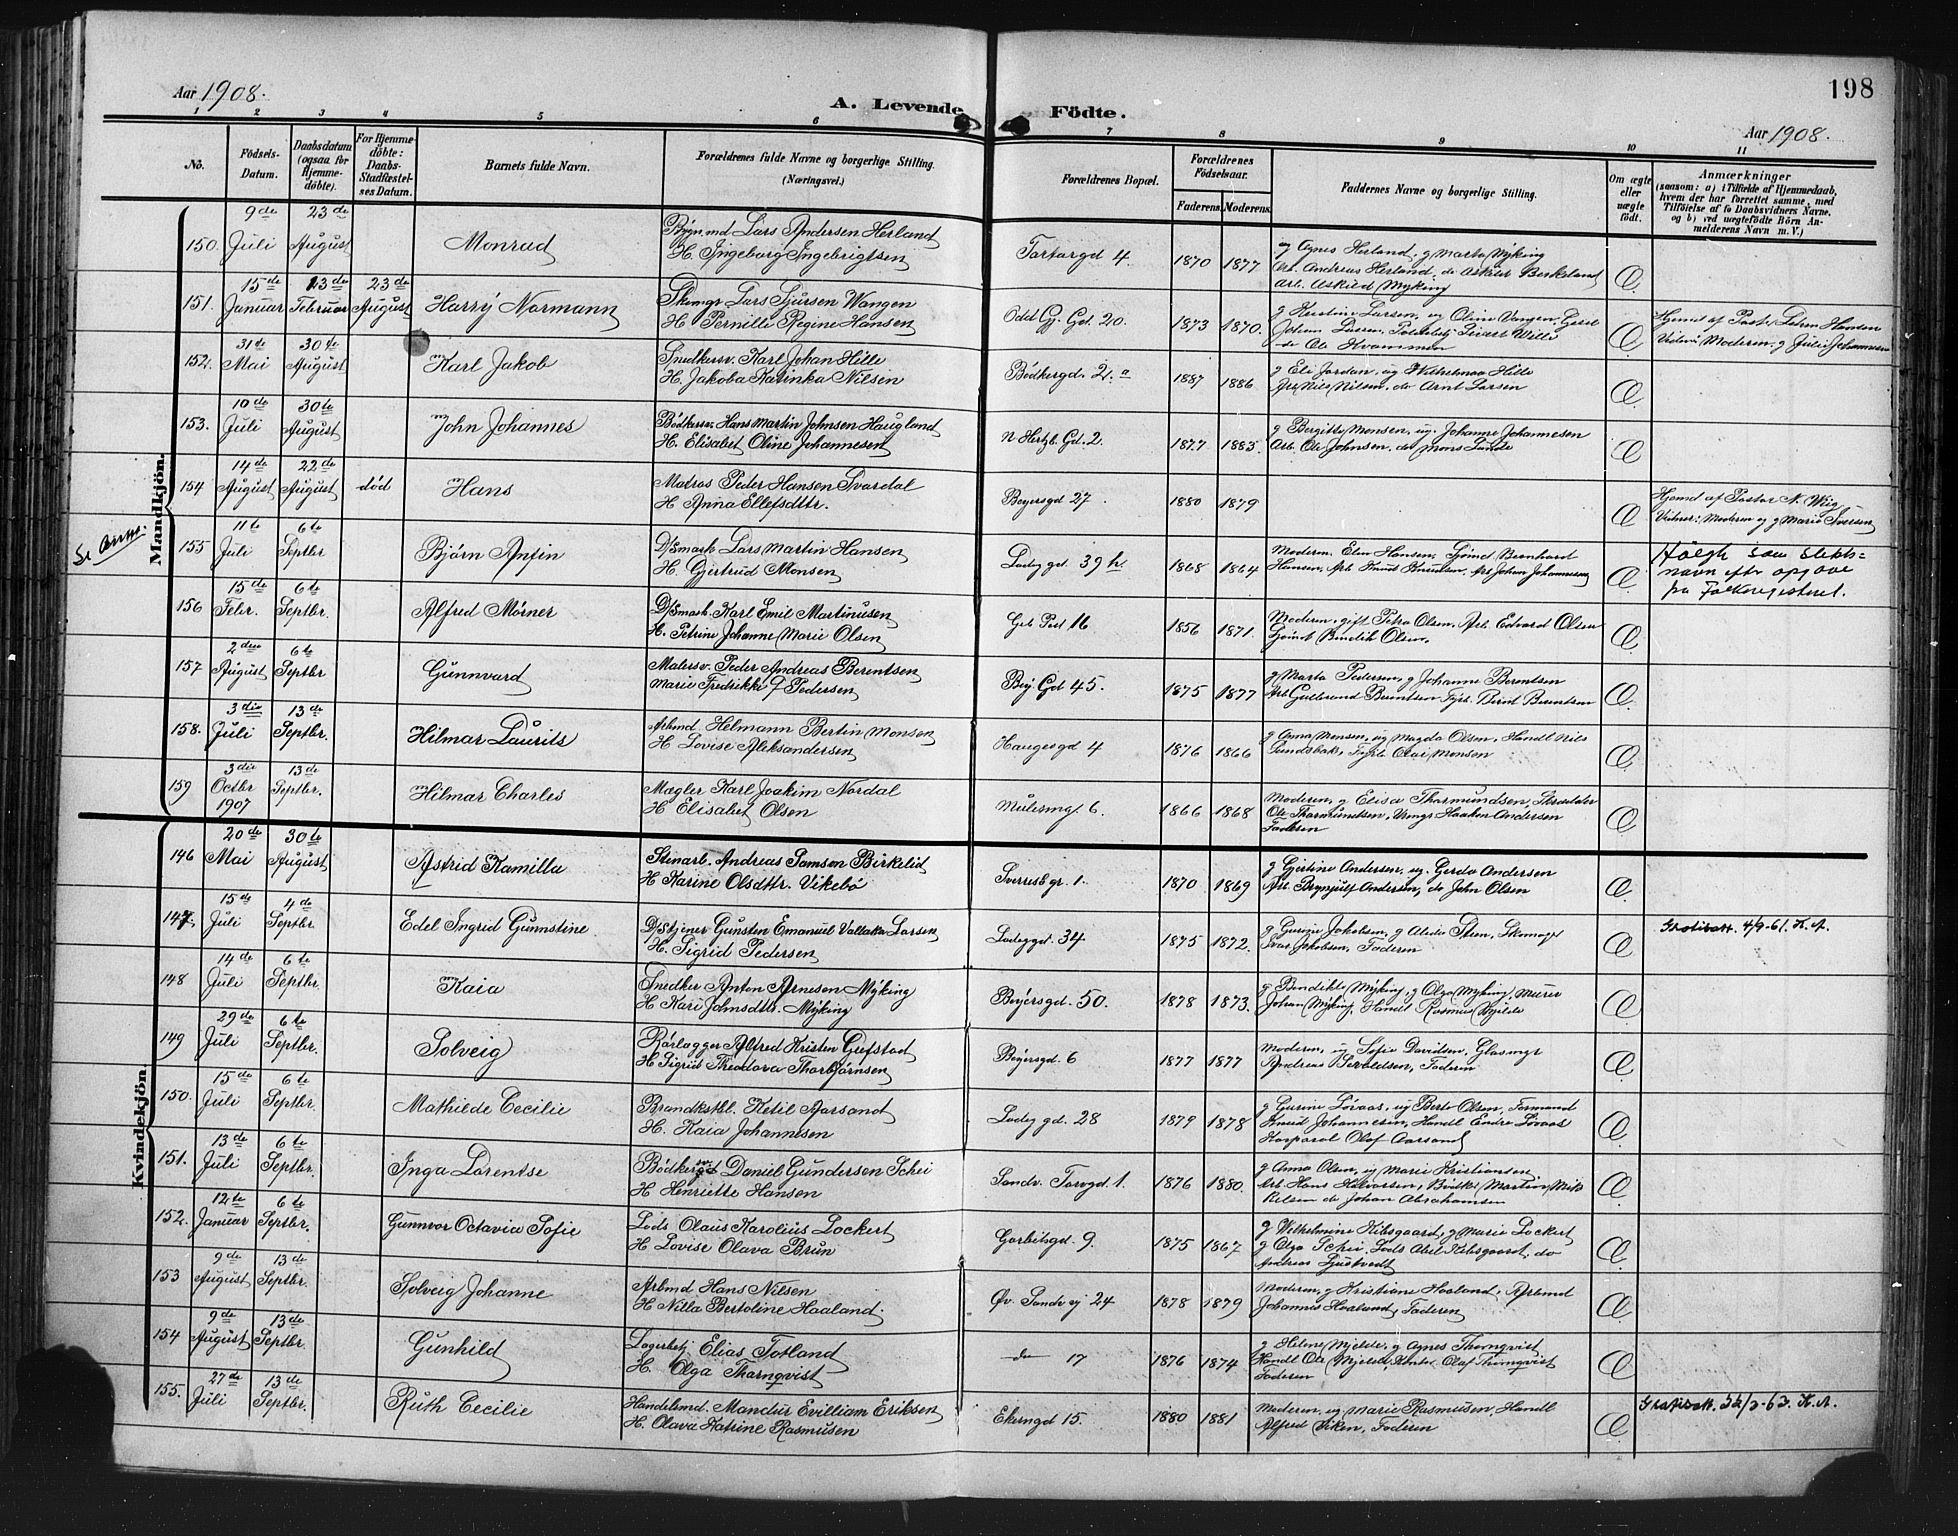 Aar 1908.
A. Levende Födte.
198
Aar 1908.
1 2 3 4 5 6 7 8 9 10 11
No.
Födsels-Datum.
Daabsdatum (ogsaa for Hjemme-döbte).
For Hjemme-döbte: Daabs-Stadfæstel-ses Datum.
Barnets fulde Navn.
Forældrenes fulde Navne og borgerlige Stilling. (Næringsvei.)
Forældrenes Bopæl.
Forældrenes Födselsaar.
Faderens. Moderens.
Faddernes Navne og borgerlige Stilling.
Om ægte eller uægte födt.
Anmærkninger
(saasom: a) i Tilfælde af Hjemmedaab, hvem der har forrettet samme, med Tilföielse af to Daabsvidners Navne, og b) ved uægtefödte Börn An-melderens Navn m. V.)
Mandkjön.
150. 9de Juli 23de August Monrad Lars Andersen Herland
H. Ingeborg Ingebrigtsen Tartargd 4. 1870 1877 ug Agnes Herland, g Marta Myking
Arb. Andreas Herland, do Askild Berkeland
Arb. Askild Myking Æ
151. 15de Januar 23de Februar 23de August Harry Normann Lars Sjursen Wangen
H. Pernille Regine Hansen Odd Gj. Gd. 20. 1873 1870. g Kirstine Larsen, ug Oline Vangen,
Johan Larsen, Sivert Wille
do Ole Hvammen Æ
Moderen, g Julie Johannesen
152. 31de Mai 30te August Karl Jakob Snedkersv. Karl Johan Hille
H. Jakoba Katinka Nilsen Bödkergd. 2.a 1887 1886 g Eli Jordan, ug Wilhelmea Hille
Nils Nilsen, do Arnt Larsen Æ
153. 10de Juli 30te August John Johannes Bödkersv. Hans Martin Johnsen Haugland
H. Elisabet Oline Johannesen N Hertzb. Gd. 2. 1877 1883. g Bergitte Monsen, ug. Johanne Johannesen
Arb. Ole Johnsen, do Mons Sunde Æ
154 14de August 22de August död Hans Matros Peder Hansen Svardal
H Anna Ellefsdttr. Beyersgd 27 1880 1879 Æ Hjemd af Pastor N. Wiig
Vidner: Moderen og g Marie Iversen
155 11te Juli 6te Septbr Björn Antin D/Smask. Lars Martin Hansen
H. Gjertrud Monsen Ladeg gd 39 1868 1864 Moderen, Elen Hansen, Bernhard
Hansen, Arb Knud Knudsen, Arb Johan Johannesen Æ som slekts-
navn efter opgave
på Folkeregisteret.
156 15de Febr. 6te Septbr. Alfred Mörner D/Smask. Karl Emil Martinusen
H. Petrine Johanne Marie Olsen 16 1856 1871. Moderen, gift Petra Olsen, Arb. Edvard Olsen
Bendik Olsen. Æ
157 2den August 6te Septbr Gunnvard Malersv. Peder Andreas Berentsen
Marie Fredrikke Pedersen Bey. Gd 45. 1875 1877 g Marta Pedersen, g Johanne Berentsen
Arb Gulbrand Berentsen, Fyrb. Bernt Berentsen Æ
158. 3die Juli 13de Septbr. Hilmar Laurits Arbmd. Helmann Bertin Monsen
H Lovise Aleksandersen Haugesgd 4 1876 1866 g Anna Monsen, ug Magda Olsen, Handl Nils
Sundsbak, Fyrb. Olai Monsen Æ
159 3die Octbr 1907 13de Septbr. Hilmar Charles Mægler Karl Joakim Nordal
H Elisabet Olsen 6. 1866 1868 Moderen, g Elisa Thormundsen, Skrædder
Ole Thormundsen, Haakon Andersen
Faderen Æ
Kvindekjön.
146 20de Mai 30te August Astrid Kamilla Stenarb. Andreas Samson Birkelid
H Karine Olsdttr. Vikebö Sverresgr. 1. 1870 1869 g Gjertine Andersen, ug. Gerda Andersen
Arb. Brynjulf Andersen, do John Olsen Æ
147. 15de Juli 4de Septbr. Edel Ingrid Gunnstine Gunsten Emanuel Vallata Larsen
H. Sigrid Pedersen Ladeggd. 34 1875 1872. g Gurine Jakobsen, g Alida Steen,
Jakobsen, Faderen Æ 4/9-61. K.A.
148 14de Juli 6te Septbr. Kaia Snedker Anton Arnesen Myking
H. Kari Johnsdttr. Myking Beyersgd. 50. 1878 1873. g Bendikte Myking, g Olga Myking, Murer
Johan Myking, Handl Rasmus Mjelde Æ
149 29de Juli 6te Septbr. Solveig Rörlægger Alfred Kristen Grefstad
H Sigrid Theodora Thorbjörnsen Beyersgd. 6 1877 1877 Moderen, ug Sofie Davidsen, Glasmgr
Andreas Bevoldsen, Faderen Æ
150. 15de Juli 6te Septbr. Mathilde Cecilie Brandkstbl. Ketil Aarsand
H. Kaia Johannesen Ladeg gd. 28 1879 1878 g Gurine Lövaas, ug Berta Olsen, Formand
Knud Johannesen, Handl Endre Lövaas
Korporal Olaf Aarsand Æ
151. 13de Juli 6te Septbr. Inga Lorentse Bödker Daniel Gundersen Schei
H Henriette Hansen Sandv. Torvgd. 1. 1876 1880. g Anna Olsen, ug Marie Kristiansen
Arb. Hans Halvorsen, Bödker Martin Mik
kelsen do Johan Abrahamsen Æ
152. 12te Januar 6te Septbr. Gunnvor Octavia Sofie Lods Olaus Karolius Lockert
H Lovise Olava Brun Garbitsgd. 9. 1875 1867 g Wilhelmine Kibsgaard, g Marie Lockert
g Olga Schei, Lods Abel Kibsgaard, do
Andreas Æ
153 9de August 13de Septbr. Solveig Johanne Arbmd Hans Nilsen
H Nilla Bertoline Haaland. Öv. Sandv ej 24 1878 1879 Moderen, g Kristiane Haaland, Arbmd
Johannes Haaland, Faderen Æ
154 9de August 13de Septbr. Gunhild Lagerbetj Elias Totland
H. Olga Thornqvist do 17 1876 1874 g Helene Mjelde, g Agnes Thornqvist
Handl Ole Mjelde, Olaf Thornqvist
Faderen Æ
155. 27de Juli 13de Septbr. Ruth Cecilie Handelsmd. Mandus Evilliam Eriksen
H. Olava Katrine Rasmusen Ekerngd 15. 1880 1881 Moderen, ug Marie Rasmusen, Handl
Alfred Viken, Faderen Æ K.A.